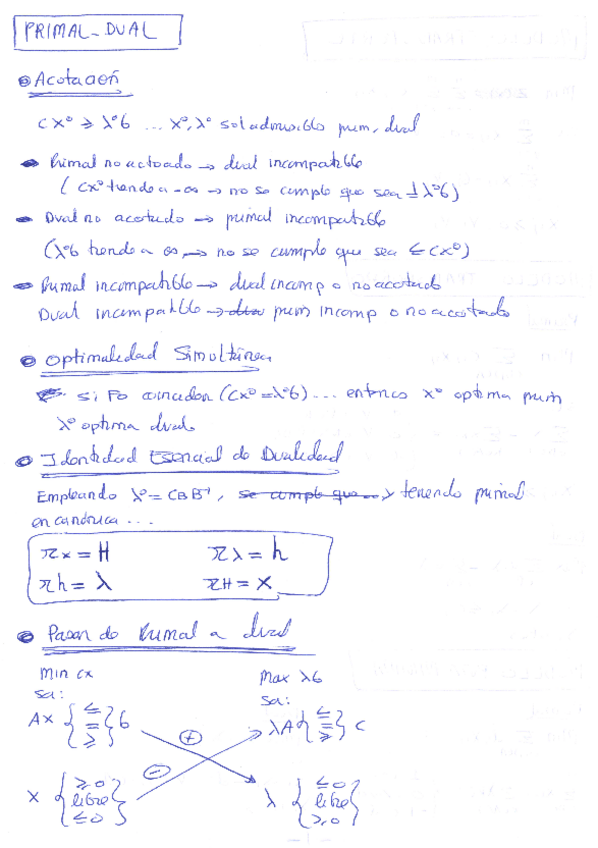 PRIMAL-DUAL
Acotación
cx° ≥ λ°b ... x°, λ° sol admisible prim, dual
Primal no acotado → dual incompatible
(cx° tiende a -∞ → no se cumple que sea ≥ λ°b)
Dual no acotado → primal incompatible
(λ°b tiende a ∞ → no se cumple que sea ≤ cx°)
Primal incompatible → dual incomp o no acotado
Dual incompatible → prim incomp o no acotado
Optimalidad Simultánea
Si Fo coinciden (cx° = λ°b) ... entonces x° optima prim
λ° optima dual
Identidad Esencial de Dualidad
Empleando λ° = CB B⁻¹, se cumple que... y teniendo primal
en canónica ...
πx = H πλ = h
πh = λ πH = x
Pasar de Primal a dual
Min cx Max λb
sa: sa:
Ax { ≤ = ≥ } b λA { ≤ = ≥ } c
+
-
x { ≥0 libre ≤0 } λ { ≤0 libre ≥0 }
-1-